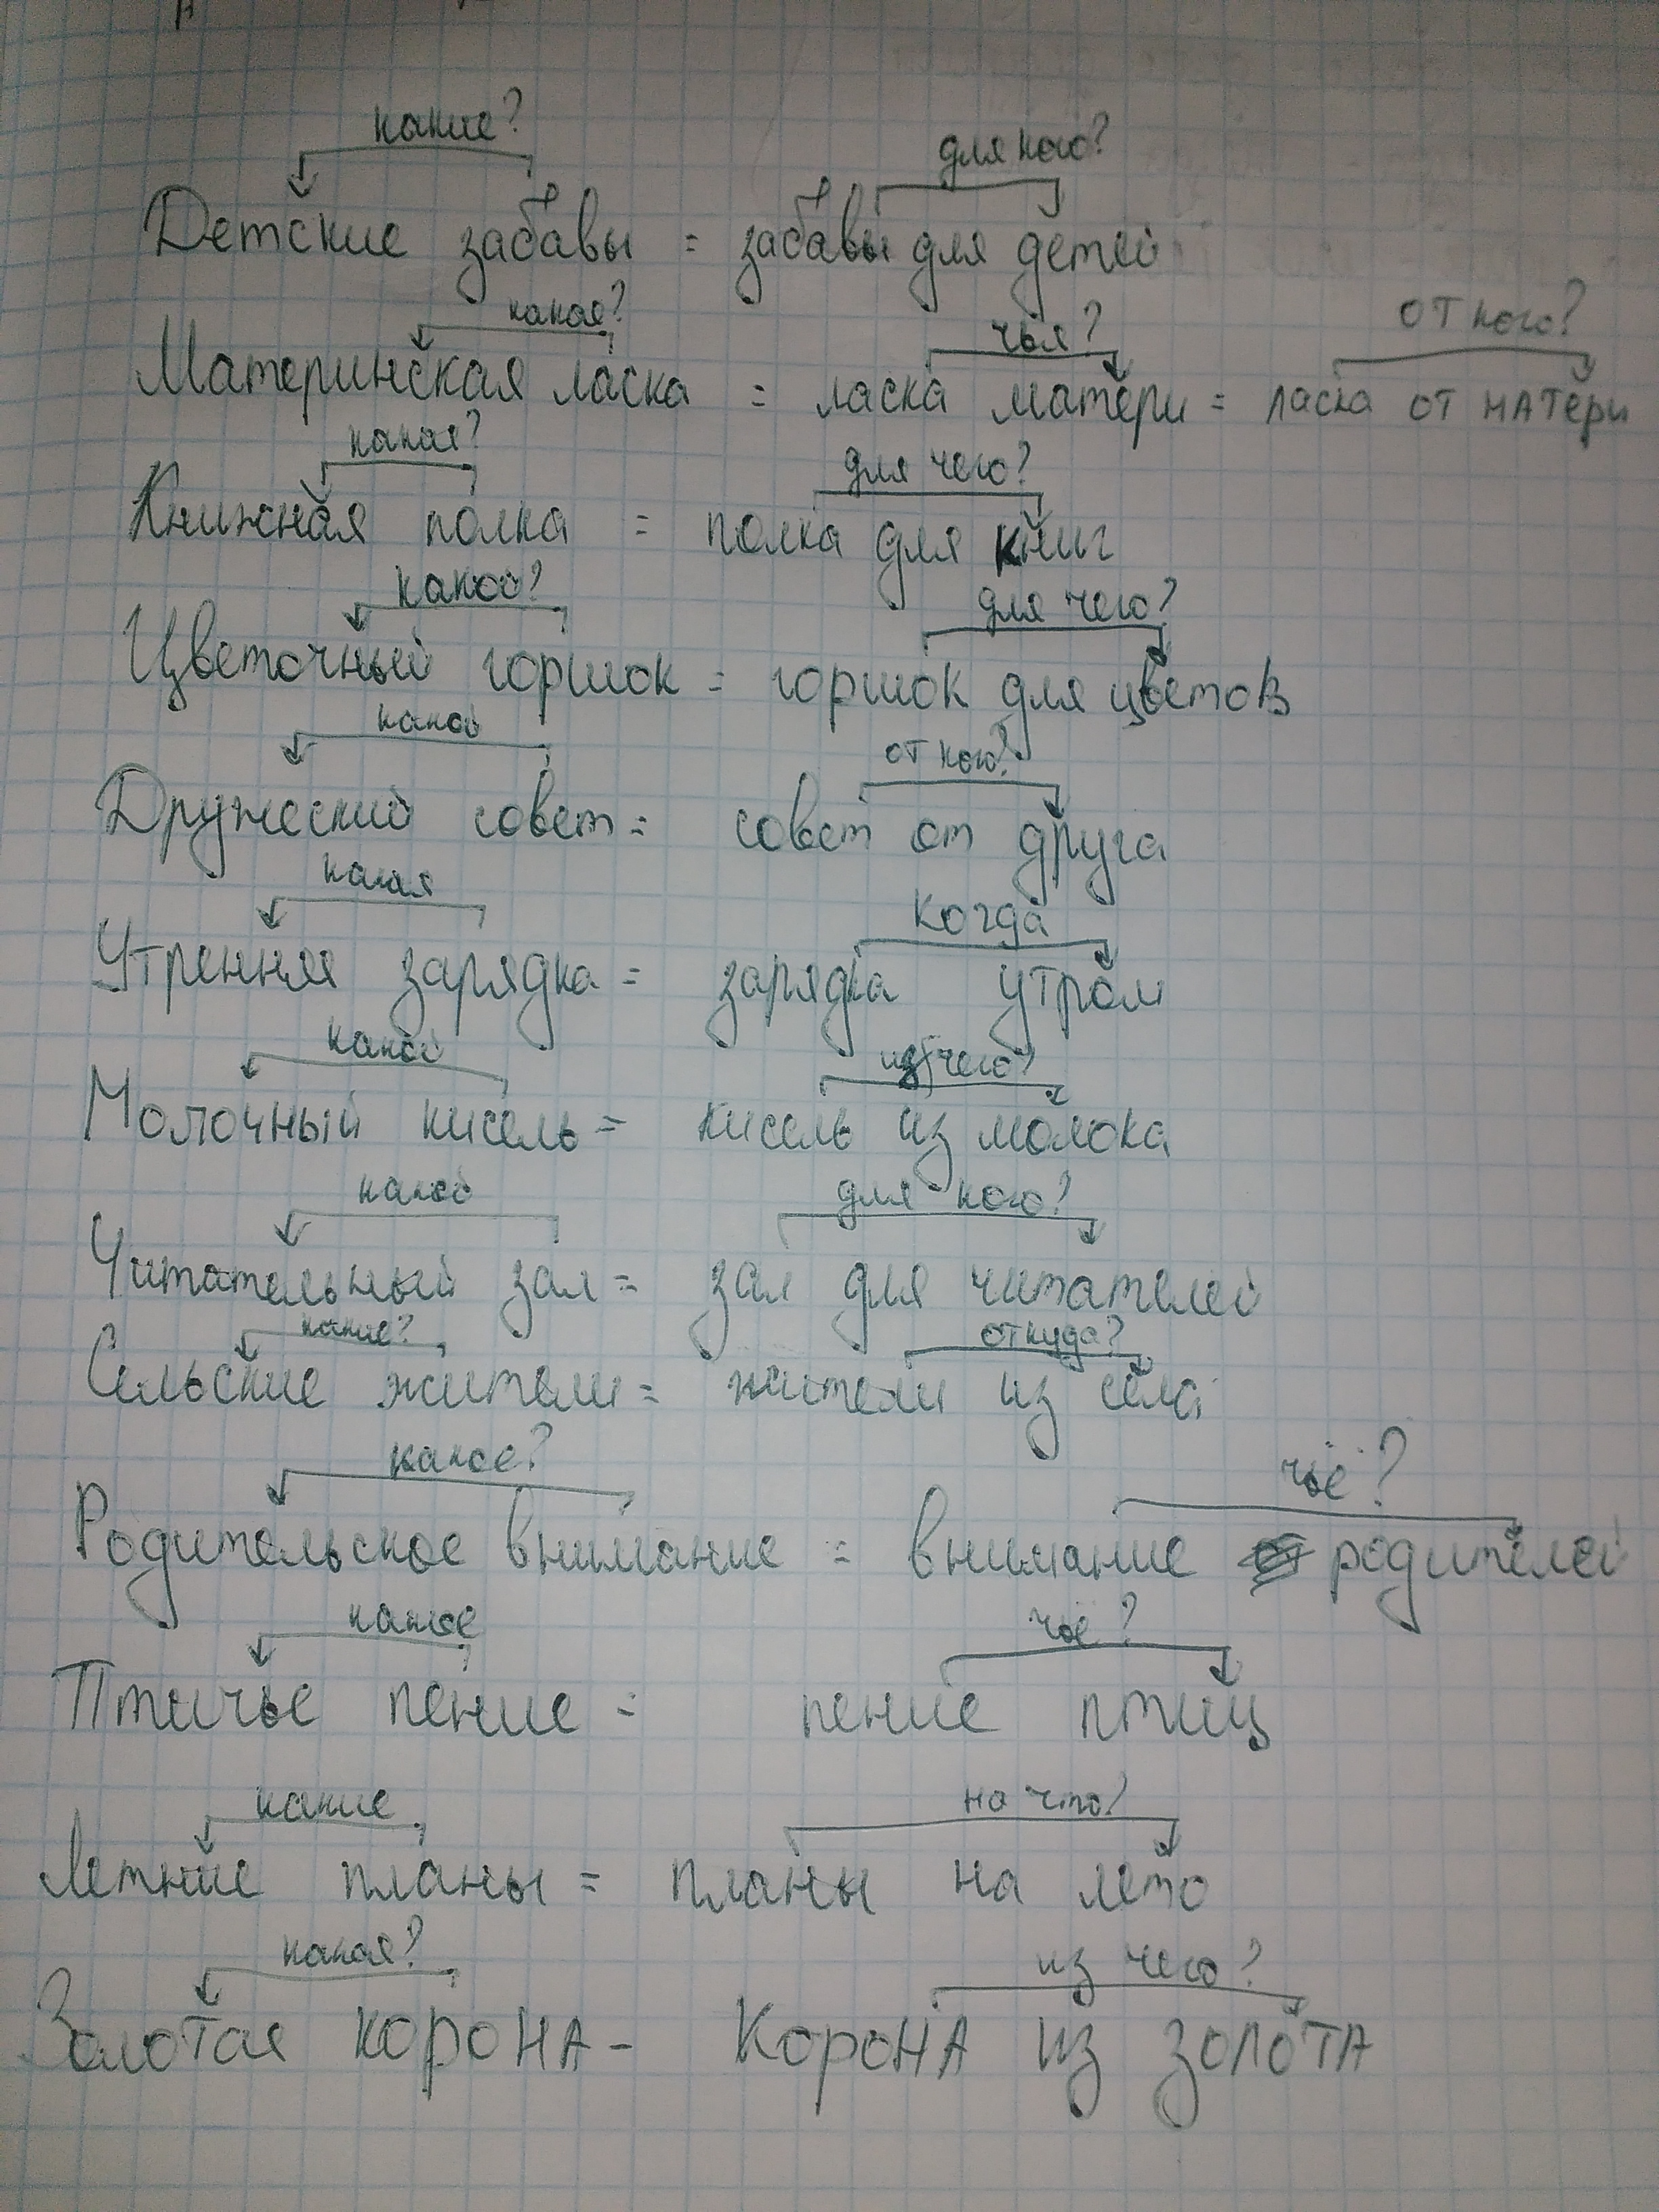 какие? для кого?
Детские забавы = забавы для детей
какая? чья? от кого?
Материнская ласка = ласка матери = ласка от матери
какая? для чего?
Книжная полка = полка для книг
какой? для чего?
Цветочный горшок = горшок для цветов
какой от кого?
Дружеский совет = совет от друга
какая Когда
Утренняя зарядка = зарядка утром
какой из чего?
Молочный кисель = кисель из молока
какой для кого?
Читательный зал = зал для читателей
какие? откуда?
Сельские жители = жители из села
какое? чьё?
Родительское внимание = внимание родителей
какое чьё?
Птичье пение = пение птиц
какие на что?
Летние планы = планы на лето
какая? из чего?
Золотая корона - Корона из золота